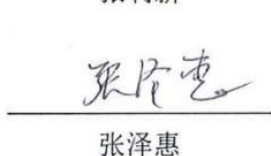 张泽惠
张泽惠